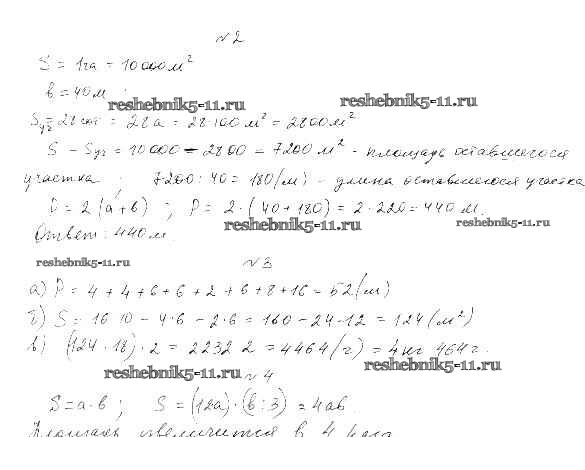 №2
S = 1га = 10000м²
в = 40м
reshebnik5-11.ru reshebnik5-11.ru
Sуч = 28 сот = 28а = 28·100м² = 2800м²
S - Sуч = 10000 - 2800 = 7200м² - площадь оставшегося
участка. 7200 : 40 = 180 (м) - длина оставшегося участка
P = 2(а+в) ; P = 2·(40+180) = 2·220 = 440 м.
reshebnik5-11.ru reshebnik5-11.ru
Ответ: 440м.
reshebnik5-11.ru №3
а) P = 4 + 4 + 6 + 6 + 2 + 6 + 8 + 16 = 52(м)
б) S = 16·10 - 4·6 - 2·6 = 160 - 24-12 = 124(м²)
в) (124·18)·2 = 2232·2 = 4464(г) = 4кг 464г.
reshebnik5-11.ru №4 reshebnik5-11.ru
S = а·в ; S = (12а)·(в:3) = 4ав.
Площадь увеличится в 4 раза